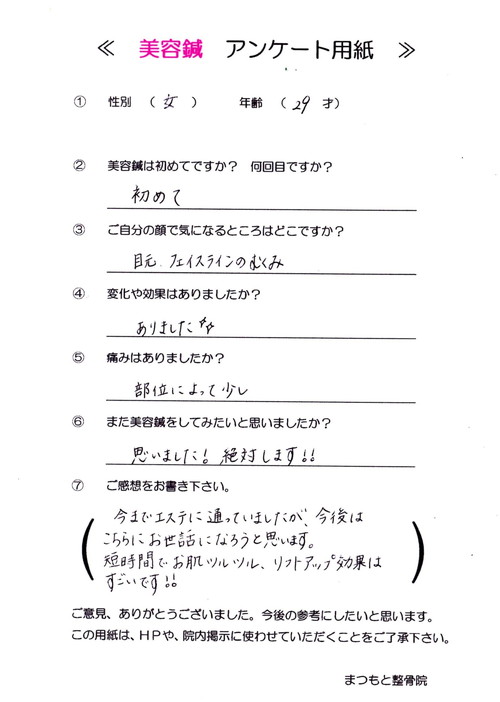 ≪ 美容鍼 アンケート用紙 ≫
① 性別 （ 女 ） 年齢 （ 29 才）
② 美容鍼は初めてですか？ 何回目ですか？
初めて
③ ご自分の顔で気になるところはどこですか？
目元、フェイスラインのむくみ
④ 変化や効果はありましたか？
ありました✨
⑤ 痛みはありましたか？
部位によって少し
⑥ また美容鍼をしてみたいと思いましたか？
思いました! 絶対します!!
⑦ ご感想をお書き下さい。
今までエステに通っていましたが、今後は
こちらにお世話になろうと思います。
短時間でお肌ツルツル、リフトアップ効果は
すごいです!!
ご意見、ありがとうございました。今後の参考にしたいと思います。
この用紙は、HPや、院内掲示に使わせていただくことをご了承下さい。
まつもと整骨院